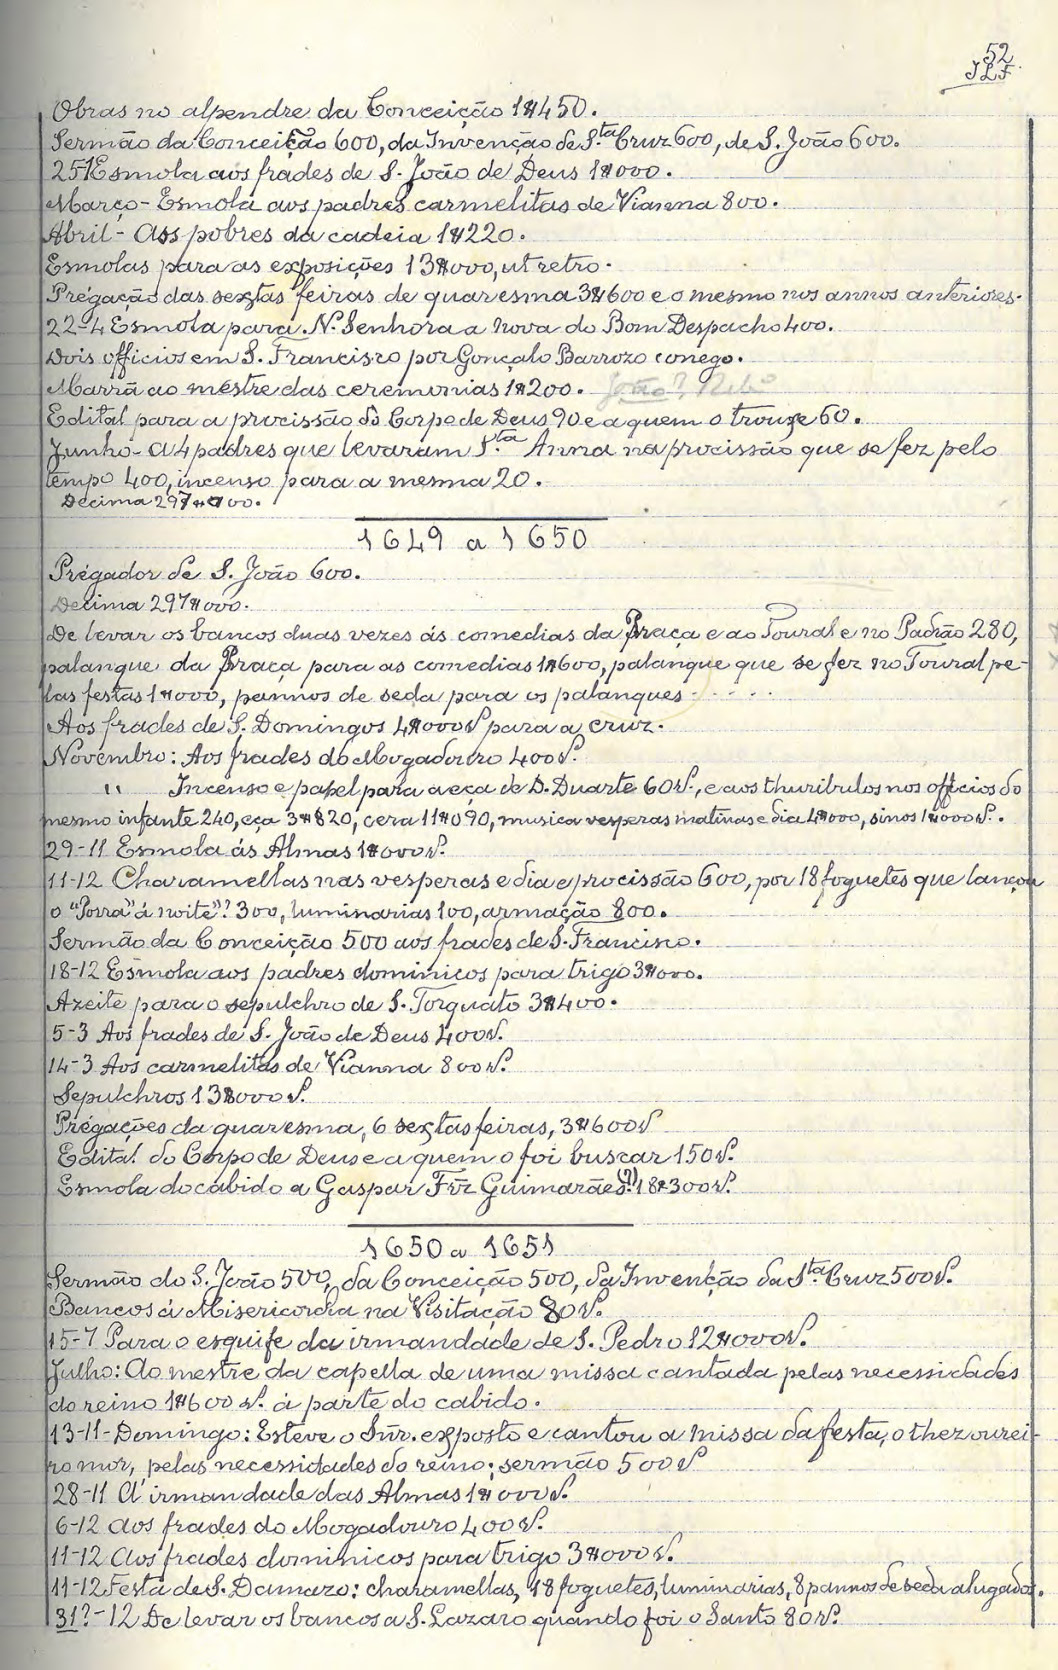 52
JLF.
Obras no alpendre da Conceição 1$450.
Sermão da Conceição 600, da Invenção de S.ta Cruz 600, de S. João 600.
25-1 Esmola aos frades de S. João de Deus 1$000.
Março - Esmola aos padres carmelitas de Vianna 800.
Abril - Aos pobres da cadeia 1$220.
Esmolas para as exposições 13$000, ut retro.
Prégação das sextas feiras de quaresma 3$600 e o mesmo nos annos anteriores.
22-4 Esmola para N. Senhora a nova do Bom Despacho 400.
Dois officios em S. Francisco por Gonçalo Barrozo conego.
Marrã ao mestre das ceremonias 1$200. João?
Edital para a procissão do Corpo de Deus 90 e a quem o trouxe 60.
Junho - A 4 padres que levaram S.ta Anna na procissão que se fez pelo
tempo 400, incenso para a mesma 20.
Decima 297$000.
1649 a 1650
Prégador de S. João 600.
Decima 297$000.
De levar os bancos duas vezes ás comedias da Praça e ao Toural e no Padrão 280,
palanque da Praça para as comedias 1$600, palanque que se fez no Toural pe-
las festas 1$000, pannos de seda para os palanques . . . . .
Aos frades de S. Domingos 4$000 rs. para a cruz.
Novembro: Aos frades do Mogadouro 400 rs.
" Incenso e papel para a eça de D. Duarte 60 rs., e aos thuribulos nos officios do
mesmo infante 240, eça 3$820, cera 11$090, musica vesperas matinas e dia 4$000, sinos 1$000 rs.
29-11 Esmola ás Almas 1$000 rs.
11-12 Charamellas nas vesperas e dia e procissão 600, por 18 foguetes que lançou
o "Porra" á noite? 300, luminarias 100, armação 800.
Sermão da Conceição 500 aos frades de S. Francisco.
18-12 Esmola aos padres dominicos para trigo 3$000.
Azeite para o sepulchro de S. Torquato 3$400.
5-3 Aos frades de S. João de Deus 400 rs.
14-3 Aos carmelitas de Vianna 800 rs.
Sepulchros 13$000 rs.
Prégações da quaresma, 6 sextas feiras, 3$600 rs
Edital do Corpo de Deus e a quem o foi buscar 150 rs.
Esmola do cabido a Gaspar Frz Guimarães (?) 18$300 rs.
1650 a 1651
Sermão do S. João 500, da Conceição 500, da Invenção da S.ta Cruz 500 rs.
Bancos á Misericordia na Visitação 80 rs.
15-7 Para o esquife da irmandade de S. Pedro 12$000 rs.
Julho: Ao mestre da capella de uma missa cantada pelas necessidades
do reino 1$600 rs. á parte do cabido.
13-11-Domingo: Esteve o Snr. exposto e cantou a missa da festa, o thezourei-
ro mór, pelas necessidades do reino; sermão 500 rs
28-11 Á irmandade das Almas 1$000 rs.
6-12 Aos frades do Mogadouro 400 rs.
11-12 Aos frades dominicos para trigo 3$000 rs.
11-12 Festa de S. Damazo: charamellas, 18 foguetes, luminarias, 8 pannos de seda alugados.
31?-12 De levar os bancos a S. Lazaro quando foi o Santo 80 rs.